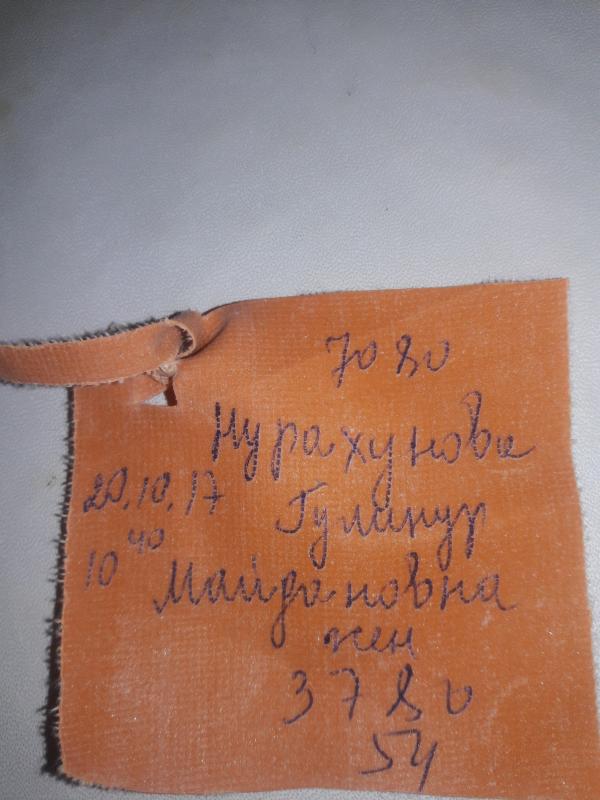 7080
Нурахунова
20.10.17
Гулинур
10 40
Майдановна
жен
3780
54